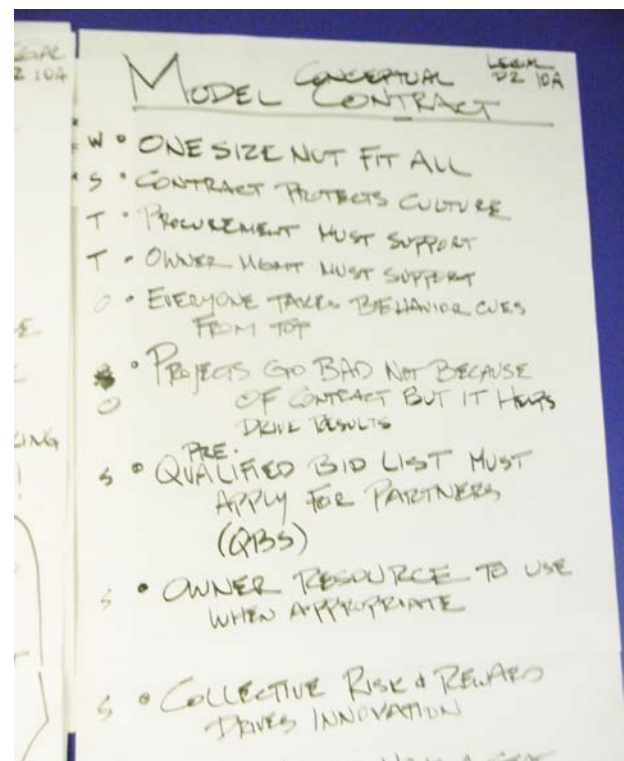 LEGAL
DZ 10A
CONCEPTUAL
MODEL CONTRACT
W • ONE SIZE NUT FIT ALL
S • CONTRACT PROTECTS CULTURE
T • PROCUREMENT MUST SUPPORT
T • OWNER MGMT MUST SUPPORT
O • EVERYONE TAKES BEHAVIOR CUES
FROM TOP
• PROJECTS GO BAD NOT BECAUSE
O OF CONTRACT BUT IT HELPS
DRIVE RESULTS
PRE-
S • QUALIFIED BID LIST MUST
APPLY FOR PARTNERS
(QBS)
S • OWNER RESOURCE TO USE
WHEN APPROPRIATE
S • COLLECTIVE RISK & REWARD
DRIVES INNOVATION